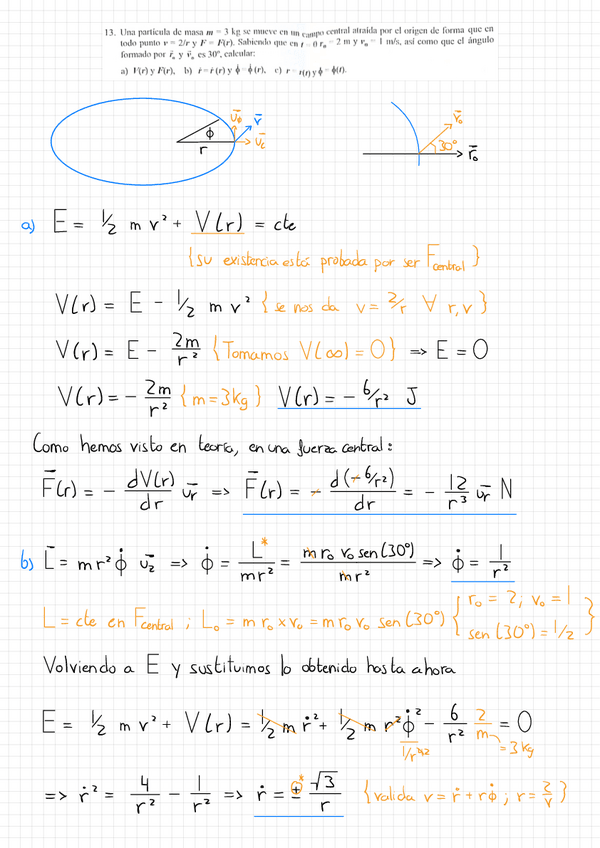 13. Una partícula de masa m = 3 kg se mueve en un campo central atraída por el origen de forma que en
todo punto v = 2/r y F = F(r). Sabiendo que en t = 0 r₀ = 2 m y v₀ = 1 m/s, así como que el ángulo
formado por r̄₀ y v̄₀ es 30°, calcular:
a) V(r) y F(r), b) ṙ = ṙ(r) y ϕ̇ = ϕ̇(r), c) r = r(t) y ϕ = ϕ(t).
ūϕ v̄ ūr ϕ r
v̄₀ 30° r̄₀
a) E = 1/2 m v² + V(r) = cte
{su existencia está probada por ser F central}
V(r) = E - 1/2 m v² {se nos da v = 2/r ∀ r,v}
V(r) = E - 2m/r² {Tomamos V(∞) = 0} => E = 0
V(r) = - 2m/r² {m = 3kg} V(r) = - 6/r² J
Como hemos visto en teoría, en una fuerza central:
F̄(r) = - dV(r)/dr ūr => F̄(r) = - d(-6/r²)/dr = - 12/r³ ūr N
b) L̄ = mr²ϕ̇ ūz => ϕ̇ = L*/mr² = m r₀ v₀ sen(30°)/mr² => ϕ̇ = 1/r²
L = cte en F central ; L₀ = m r₀ x v₀ = m r₀ v₀ sen(30°) { r₀ = 2; v₀ = 1
sen(30°) = 1/2 }
Volviendo a E y sustituimos lo obtenido hasta ahora
E = 1/2 m v² + V(r) = 1/2 m ṙ² + 1/2 m r² ϕ̇² - 6/r² 2/m = 0
1/r⁴² = 3kg
=> ṙ² = 4/r² - 1/r² => ṙ = ±* √3/r {valida v = ṙ + rϕ̇ ; r = 2/v}